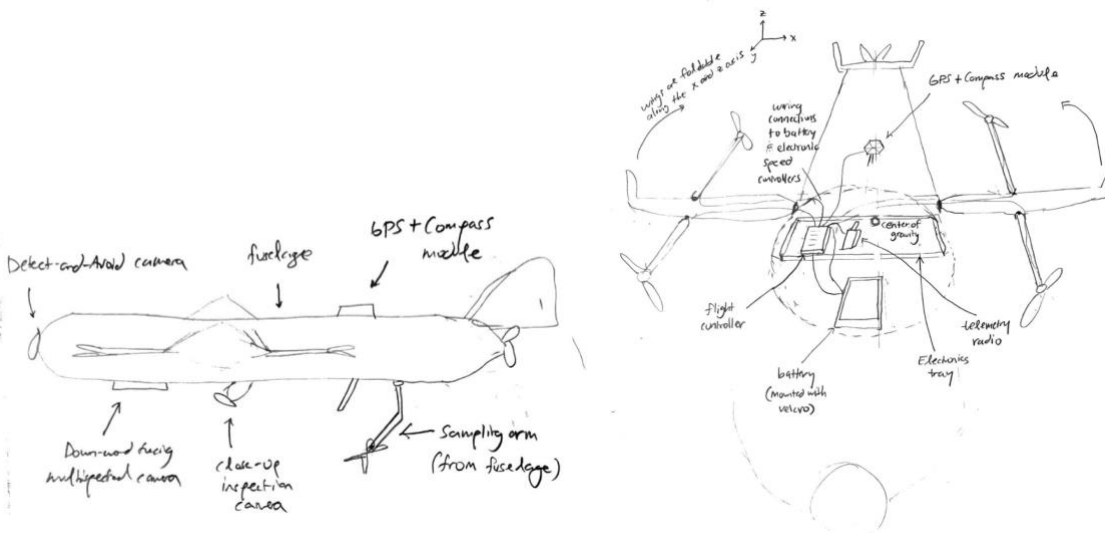 Detect-and-Avoid camera
fuselage
GPS + Compass
module
Downward facing
multispectral camera
close-up
inspection
camera
Sampling arm
(from fuselage)
z
x
y
wings are foldable
along the x and z axis
wiring
connections
to battery
& electronic
speed
controllers
GPS + Compass module
center of
gravity
flight
controller
telemetry
radio
Electronics
tray
battery
(mounted with
velcro)